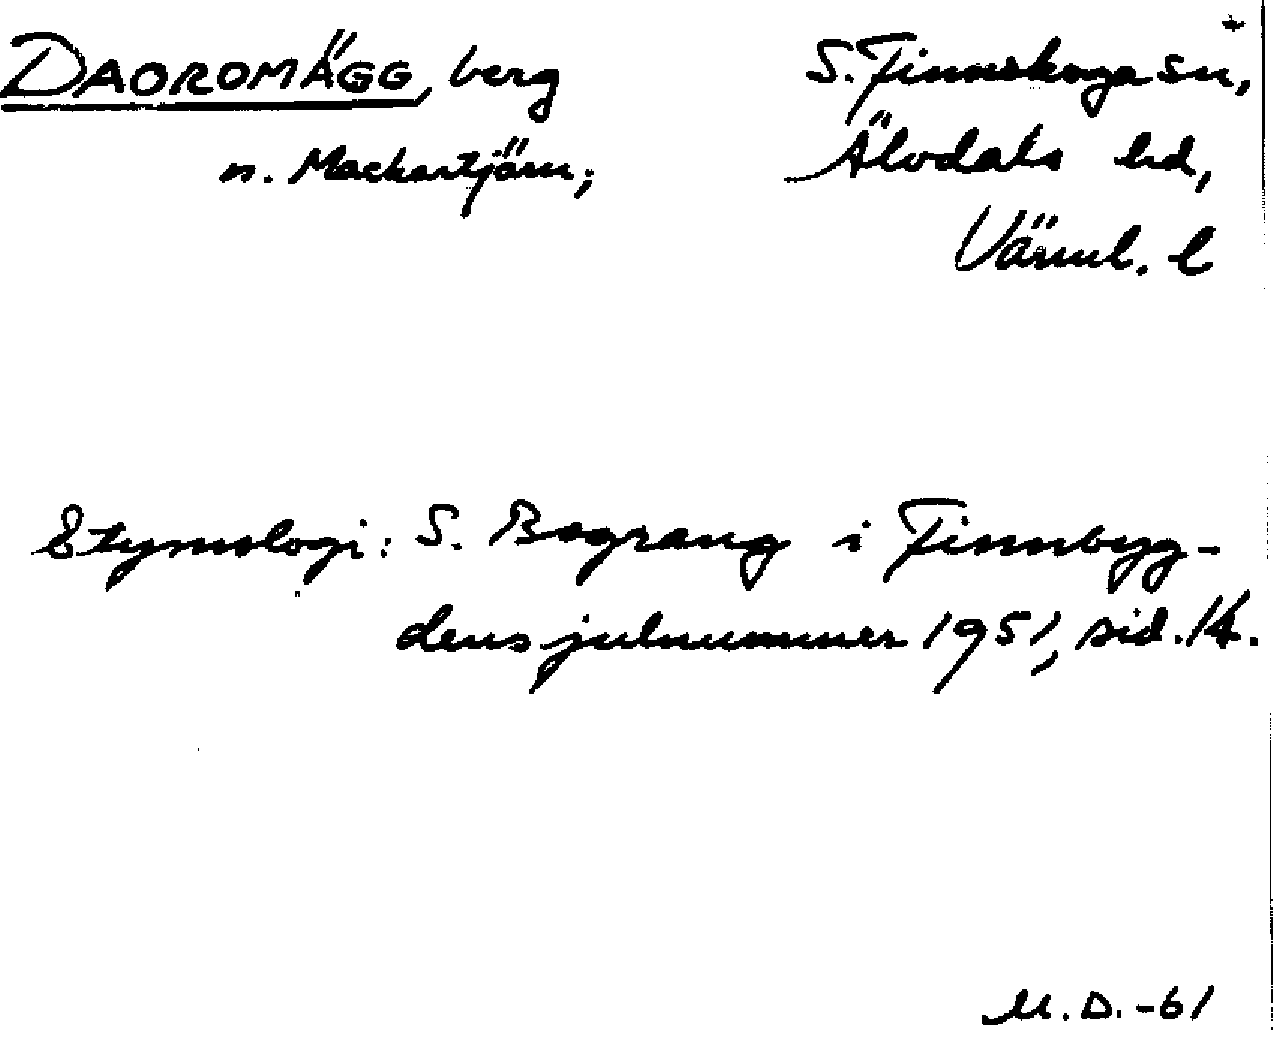 DAOROMÄGG, berg
n. Mackartjärn;
S. Finnskoga sn,
Älvdals hd,
Värml. l
Etymologi: S. Bograng i Finnbyg-
dens julnummer 1951, sid. 14.
M.D. -61